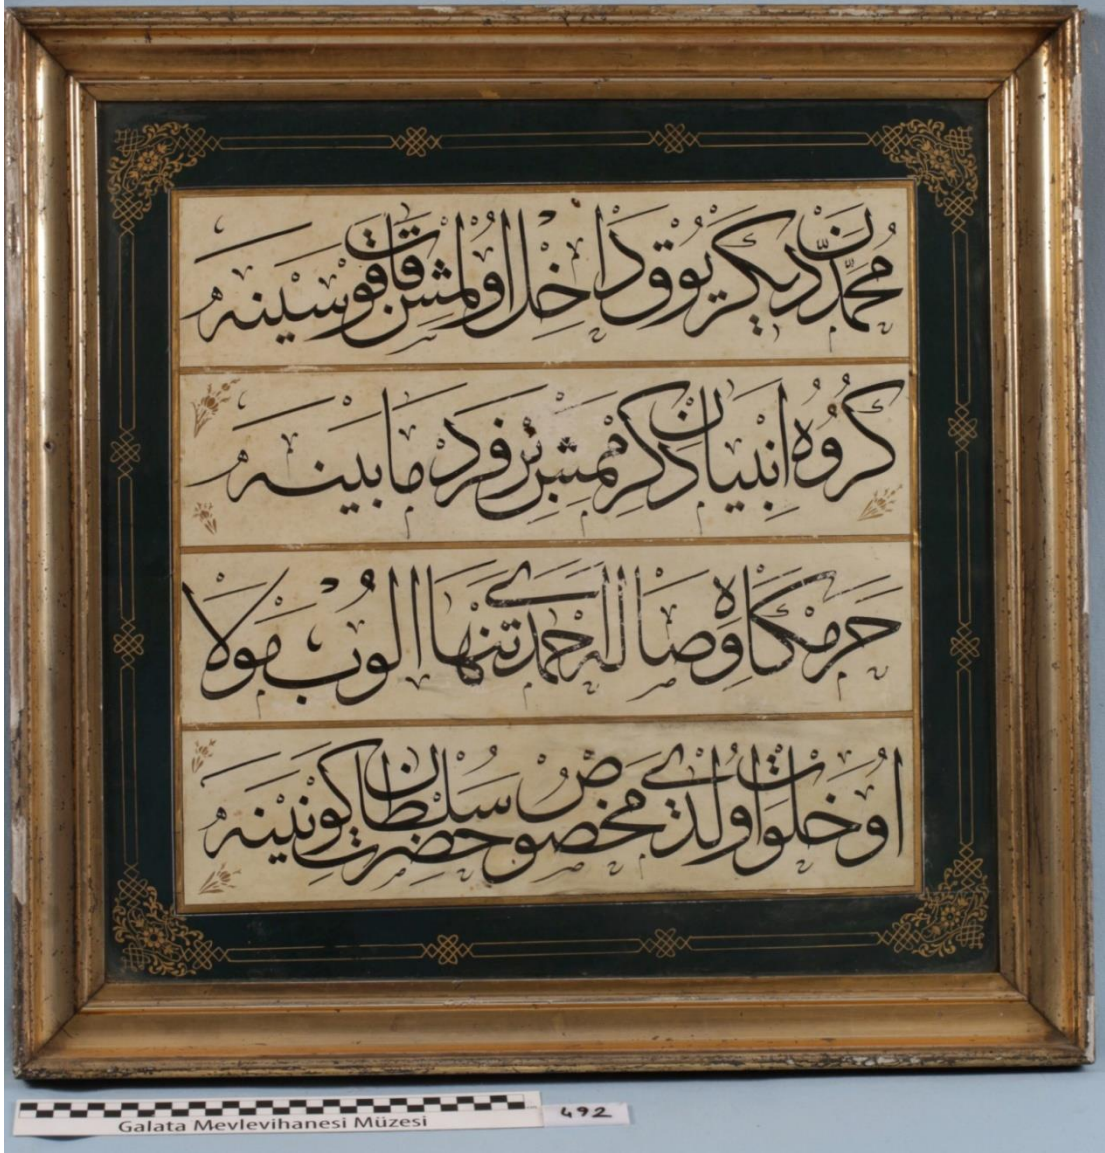 محمددن ديكر يوق داخل اولمش قاب قوسينه
كروه انبيادن كرممش بر فرد مابينه
حرمكاه وصاله احمدى تنها الوب مولا
او خلوت اولدى مخصوص حضرت سلطان كونينه
Galata Mevlevihanesi Müzesi
492